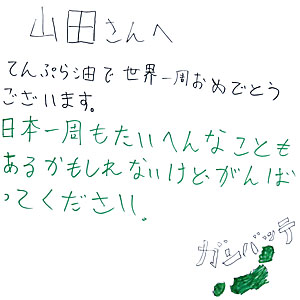 山田さんへ
てんぷら油で世界一周おめでとう
ございます。
日本一周もたいへんなことも
あるかもしれないけどがんば
ってください。
ガンバッテ